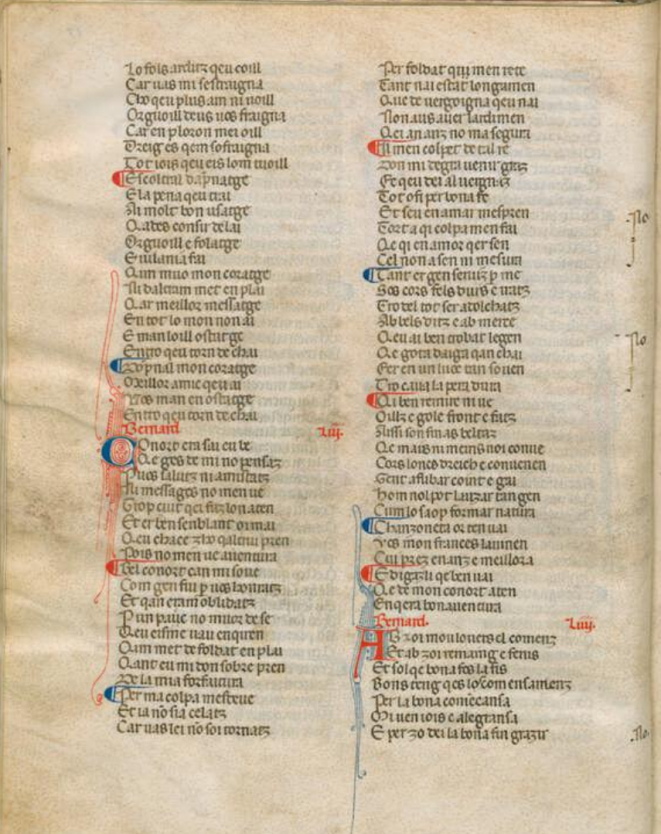 Lo fols arditz qeu coill
Car uas mi sestraigna
Cho qeu plus am ni uoill
Orguoill deus uos fraigna
Car en ploron mei oill
Dreig es qem sofraigna
Tot iois qeu eis lom tuoill
E la pena qeu trai
Ni molt bon usatge
Orguoill e folatge
E uilania fai
Cum muo mon coratge
Ni dalcram met en plai
Car meillor messatge
En tot lo mon non ai
E man loill ostatge
Entro qeu torn de chai
mon coratge
Meillor amic qeu ai
Vos man en ostatge
Entro qeu torn de chai
Bernard. Liii.
Conort era sai eu be
Qe ges de mi no pensatz
Pues salutz ni amistatz
Ni messages no men ue
Trop cuit qei faz lon aten
Et er ben senblant oimai
Qeu chace zho qaltrui pren
Pois no men ue auentura
Bel conort can mi soue
Com gen fui p uos honratz
Et qan eram oblidatz
P un pauc no muor de se
Qeu eisme uau enqeren
Qam met de foldat en plai
Qant eu mi don sobre pren
De la mia forfaitura
Per ma colpa mesteue
Et ia no sia celatz
Car uas lei no soi tornatz
Per foldat qui men rete
Tant nai estat longamen
Que de uergoigna qeu nai
Non aus auer lardimen
Qei an anz no masegura
Il men colpet de tal re
Don mi degra uenir gratz
Tot o fi per bona fe
Et seu en amar mespren
Tort a qui colpa men fai
Qe qi en amor qer sen
Cel non a sen ni mesura
Tant er gen seruitz p me
Sos cors fels durs e iratz
Tro del tot ser adolchatz
Ab bels ditz e ab merce
Qeu ai ben trobat legen
Qe gota daiga qan chai
Fer en un luec tan souen
Tro caua la pera dura
Qi ben remire ni ue
Oilz e gole front e fatz
Aissi son finas beltaz
Qe mais ni meins noi coue
Cors lonc dreich e conuenen
Gent afibar coint e gai
Hom nol pot lauzar tan gen
Cum lo saop formar natura
Chanzoneta or ten uai
Vas mon frances lauinen
Cui prez enanz e meillora
E digas li qe ben uai
Qe de mon conort aten
Enqera bonauentura
Bernard. Liiii.
Ab zoi mou lo uers el comenz
Et ab zoi remaing e fenis
Et sol qe bona fos la fis
Bons teng qes lo comensamenz
Per la bona comecansa
Mi uen iois e alegransa
E per zo dei la bona fin grazir